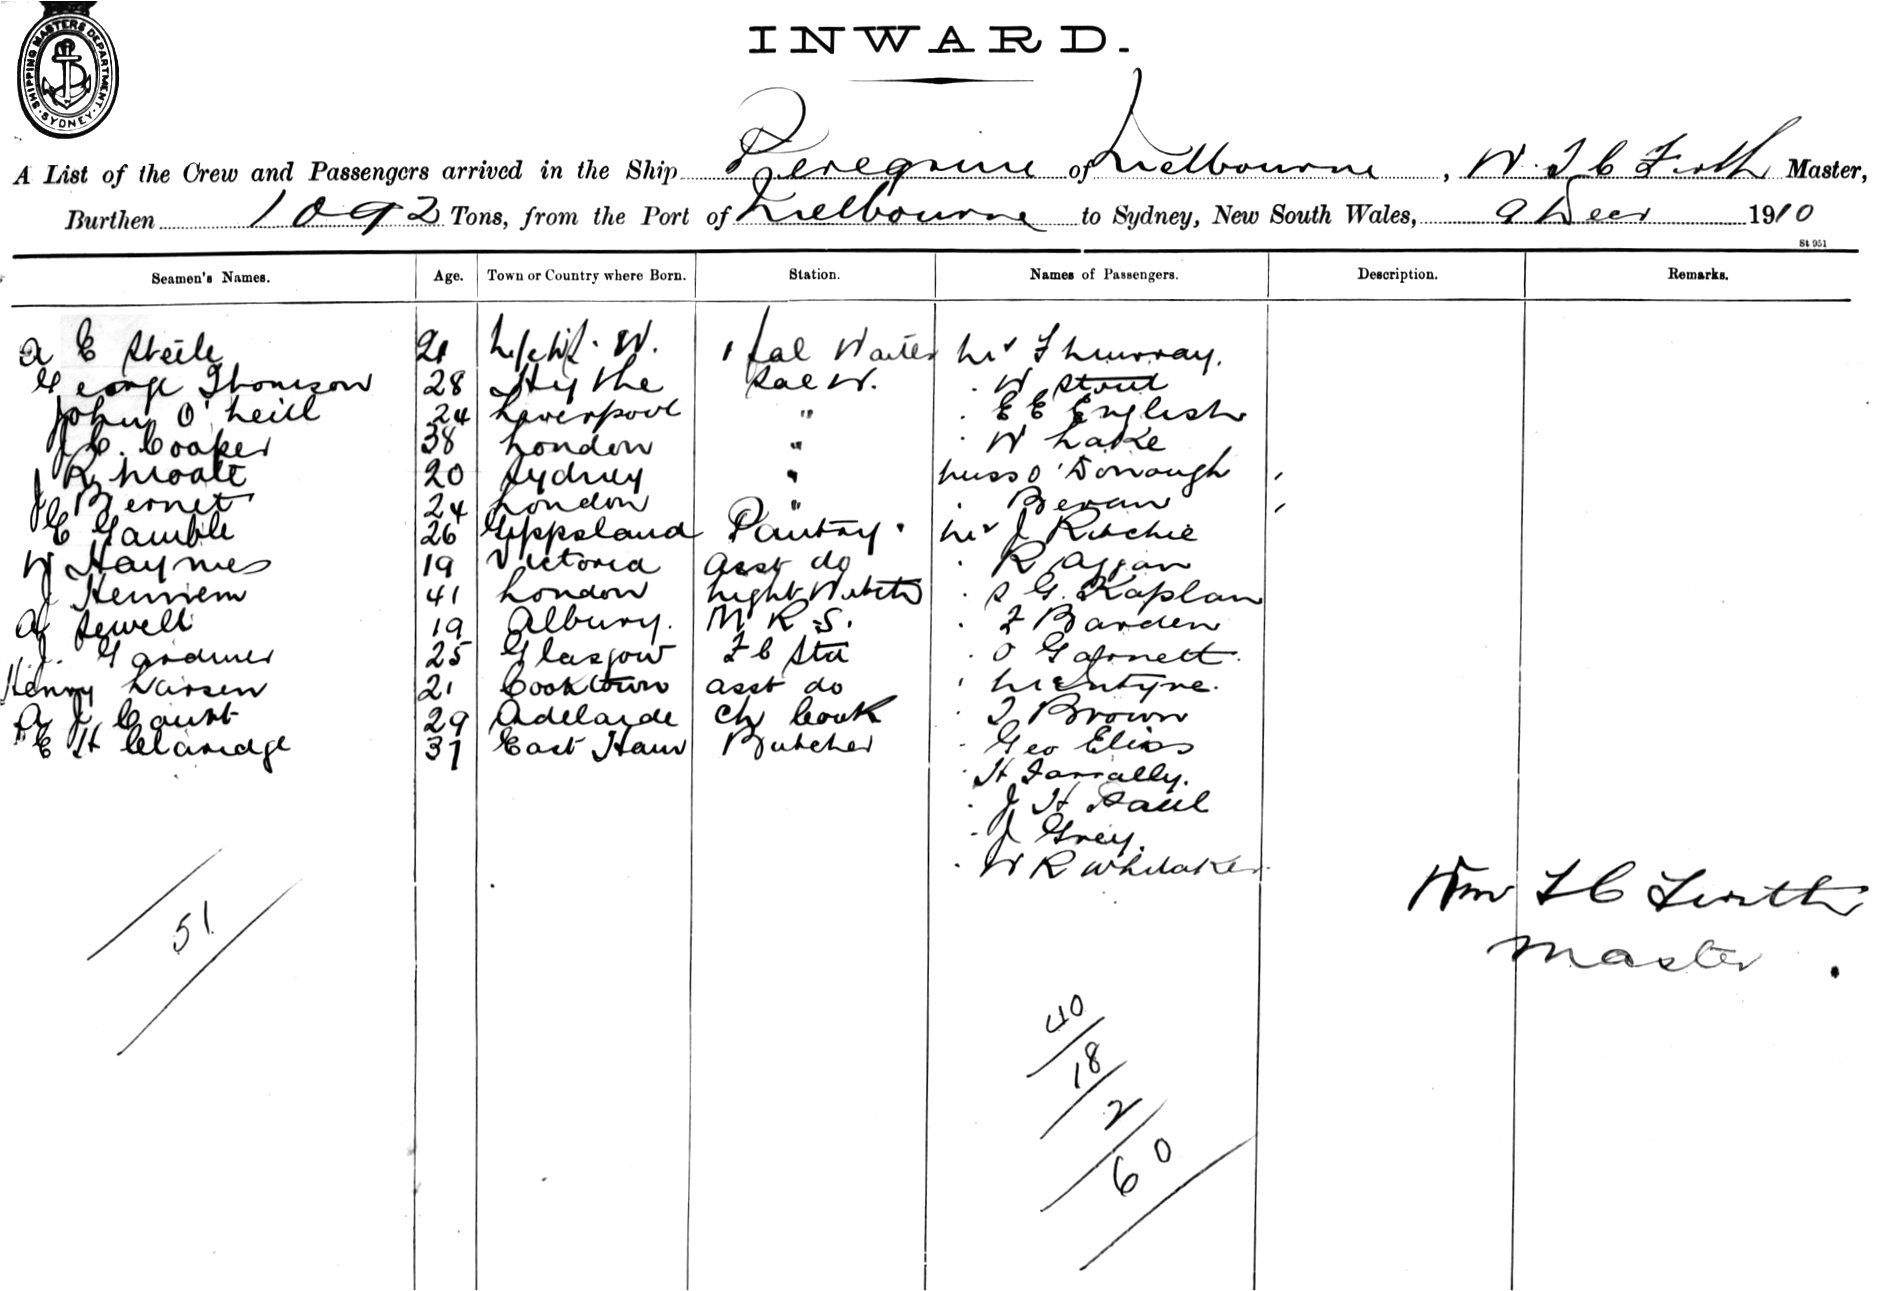 SHIPPING MASTERS DEPARTMENT. SYDNEY.
INWARD.
A List of the Crew and Passengers arrived in the Ship Peregrine of Melbourne, W. F C Firth Master,
Burthen 1092 Tons, from the Port of Melbourne to Sydney, New South Wales, 9 Decr 1910
St 951
Seamen's Names. Age. Town or Country where Born. Station. Names of Passengers. Description. Remarks.
A E Steile 21 W. Sal Waiter Mr F Murray.
George Thomson 28 Hythe Sal W. " W Stout
John O'Neill 24 Liverpool " " E E English
J C. Cooper 38 London " " W Lake
J R Moate 20 Sydney " Miss O'Donough
J Bernet 24 London " " Bevan
E Gamble 26 Gippsland Pantry. Mr J Ritchie
W Haymes 19 Victoria asst do " R
J 41 London Night " S G. Kaplan
A Sewell 19 Albury. M R S. " F Barden
J. Gardiner 25 Glasgow F C Std " O Garnett.
Henry Larsen 21 Cooktown asst do " McEntyre.
A J Court 29 Adelaide Ch Cook " T Brown
E H Claridge 37 East Ham Butcher " Geo Elios
" H Farrally.
" J H Paul
" J Grey.
" W R Whitaker
Wm F C Firth
Master.
51
40
18
2
60